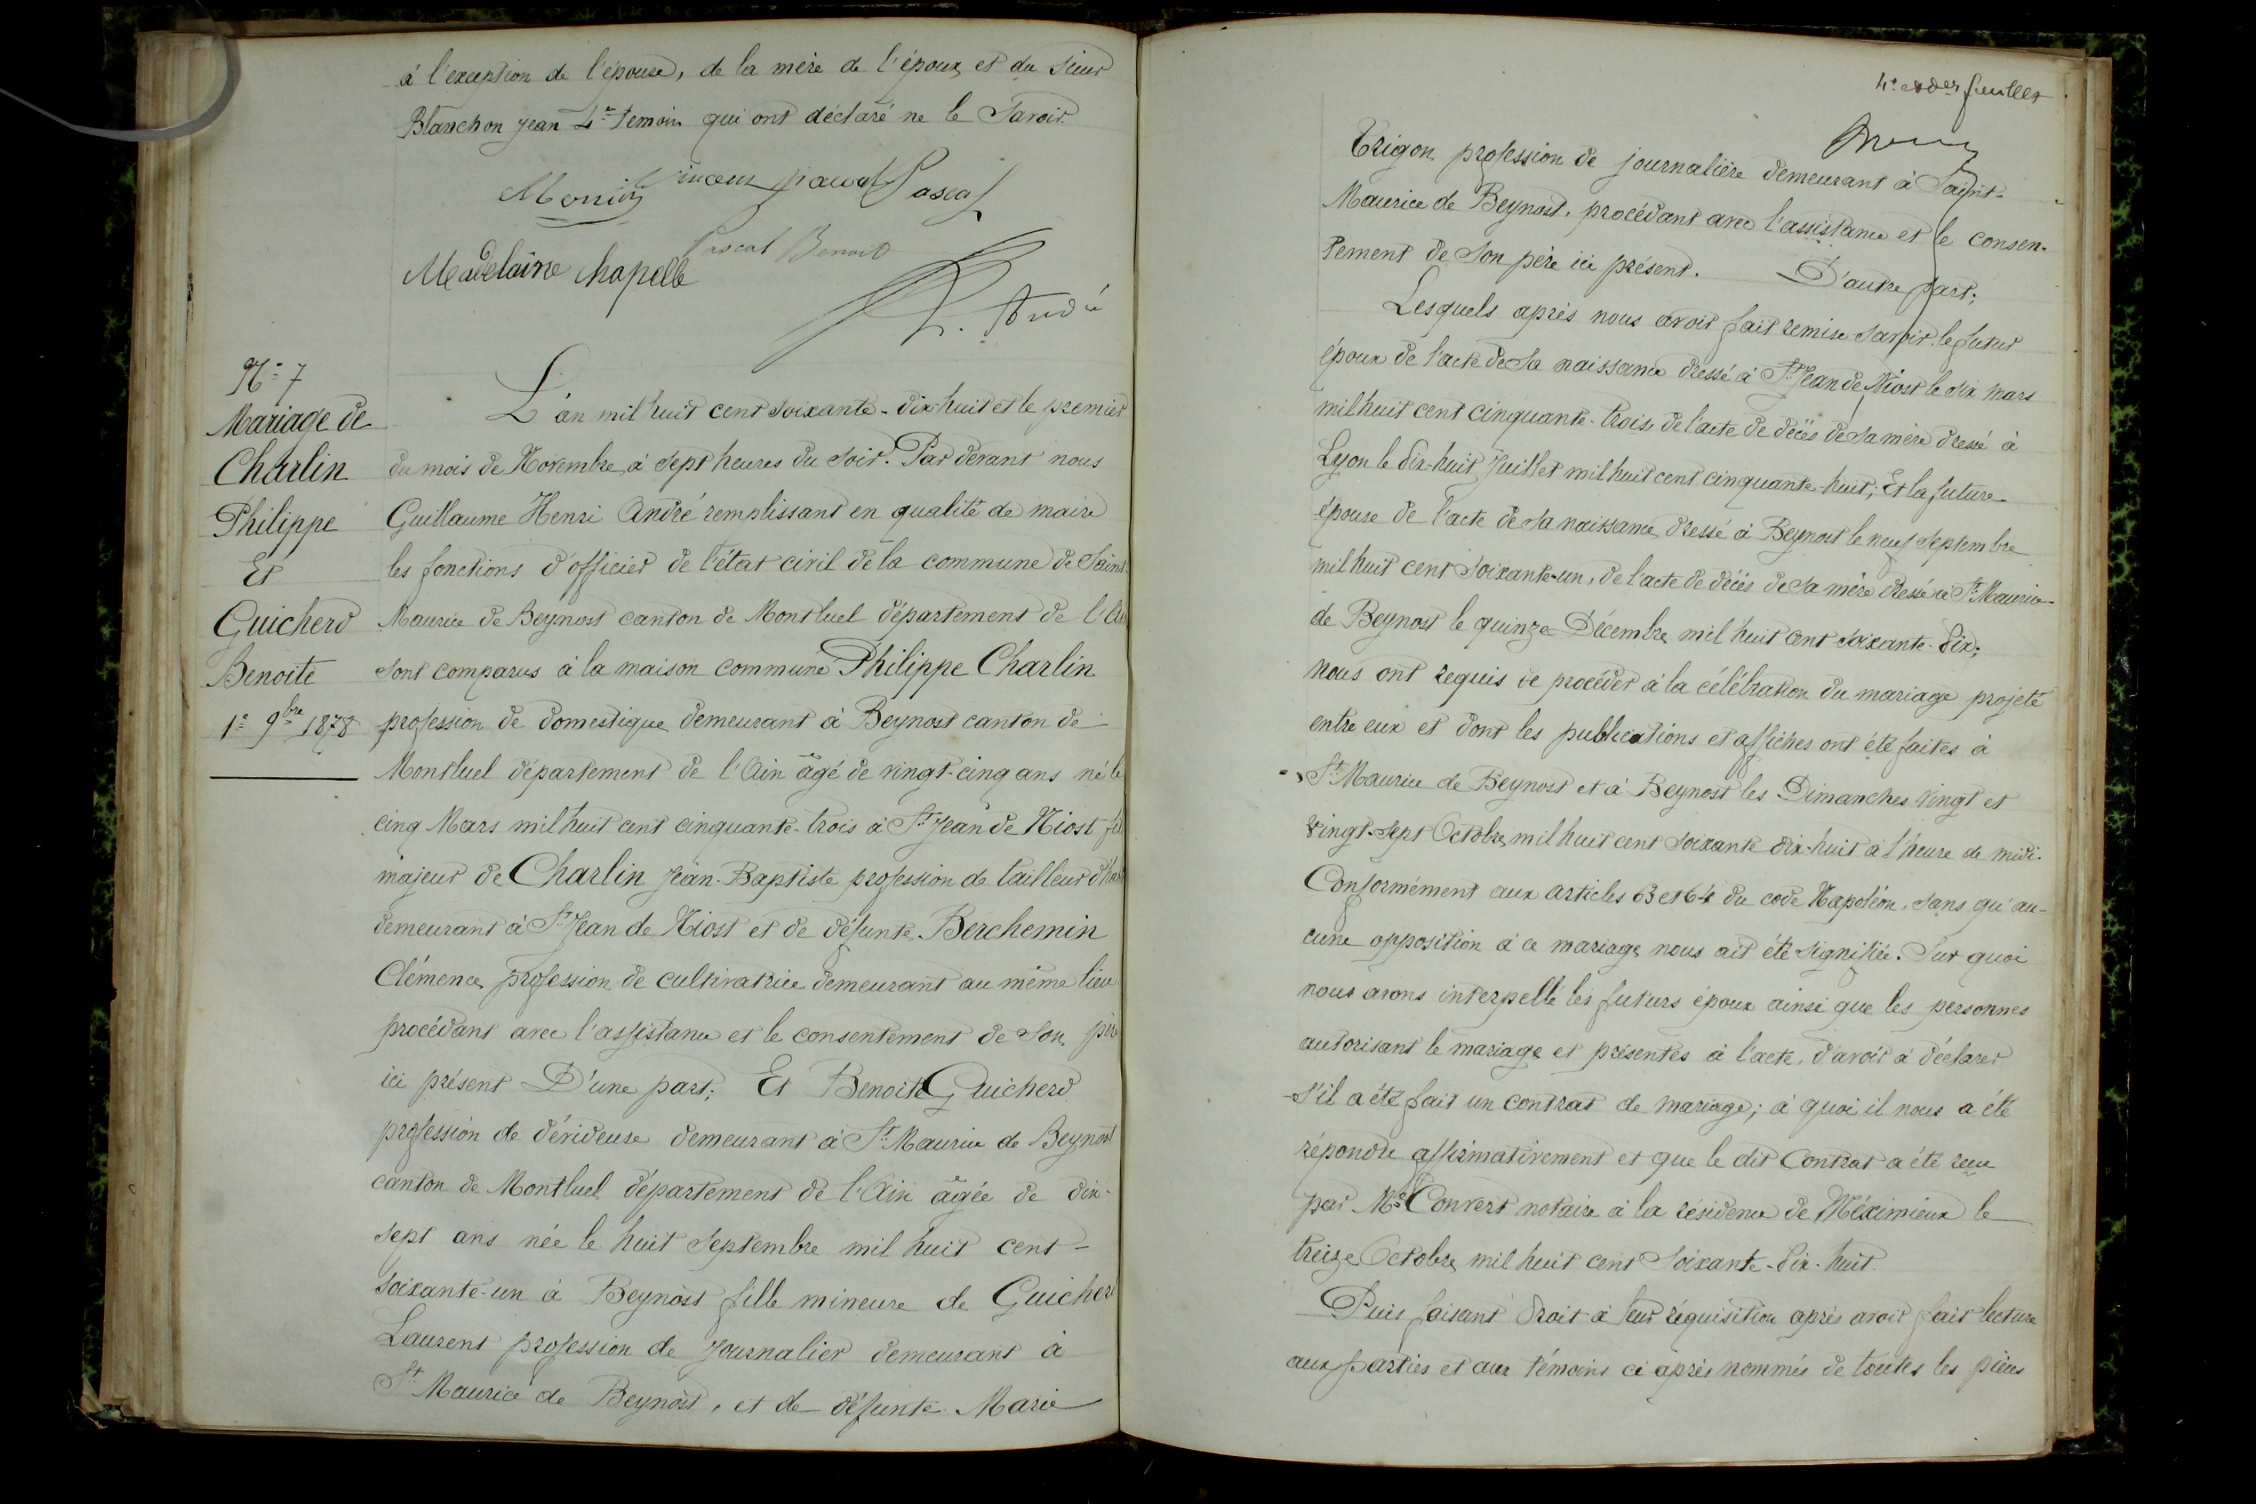 à l'exception de l'épouse, de la mère de l'époux et du sieur
Blanchon jean 4e temoin qui ont déclaré ne le Savoir.
Pascal
Pascal Benoit
Madelaine Chapelle
h. André
No 7
Mariage de
Charlin
Philippe
Et
Guicherd
Benoite
1er 9bre 1878
L'an mil huit cent soixante-dix-huit et le premier
du mois de Novembre à sept heures du soir. Par devant nous
Guillaume Henri André remplissant en qualité de maire
les fonctions d'officier de l'état civil de la commune de Saint
Maurice de Beynost canton de Montluel département de l'Ain
sont comparus à la maison commune Philippe Charlin
profession de domestique demeurant à Beynost canton de
Montluel département de l'Ain âgé de vingt-cinq ans né le
cinq Mars mil huit cent cinquante-trois à St Jean de Niost fils
majeur de Charlin Jean-Baptiste profession de tailleur d'hab
demeurant à St Jean de Niost et de défunte Berchemin
Clémence profession de cultivatrice demeurant au même lieu
procédant avec l'assistance et le consentement de son père
ici présent D'une part; Et Benoite Guicherd
profession de dévideuse demeurant à St Maurice de Beynost
canton de Montluel département de l'Ain âgée de dix-
sept ans née le huit Septembre mil huit cent-
soixante-un à Beynost fille mineure de Guicherd
Laurent profession de journalier demeurant à
St Maurice de Beynost, et de défunte Marie
4e et der feuillet
Trigon profession de journalière demeurant à Saint-
Maurice de Beynost, procédant avec l'assistance et le consen-
tement de son père ici présent. D'autre part;
Lesquels après nous avoir fait remise savoir, le futur
époux de l'acte de sa naissance dressé à St Jean de Niost le six mars
mil huit cent cinquante-trois, de l'acte de décès de sa mère dressé à
Lyon le dix-huit Juillet mil huit cent cinquante-huit; Et la future
épouse de l'acte de sa naissance dressé à Beynost le neuf Septembre
mil huit cent soixante-un, de l'acte de décès de sa mère dressé à St Maurice-
de Beynost le quinze Décembre mil huit cent soixante-dix;
nous ont requis de procéder à la célébration du mariage projeté
entre eux et dont les publications et affiches ont été faites à
St Maurice de Beynost et à Beynost les Dimanches vingt et
vingt-sept Octobre mil huit cent soixante dix-huit à l'heure de midi.
Conformément aux articles 63 et 64 du code Napoléon, sans qu'au-
cune opposition à ce mariage nous ait été signifiée. Sur quoi
nous avons interpellé les futurs époux ainsi que les personnes
autorisant le mariage et présentes à l'acte, d'avoir à déclarer
s'il a été fait un contrat de mariage; à quoi il nous a été
répondu affirmativement et que le dit Contrat a été reçu
par Me Convert notaire à la résidence de Méximieux le
treize Octobre mil huit cent soixante-dix-huit.
Puis faisant droit à leur réquisition après avoir fait lecture
aux parties et aux témoins ci après nommés de toutes les pièces